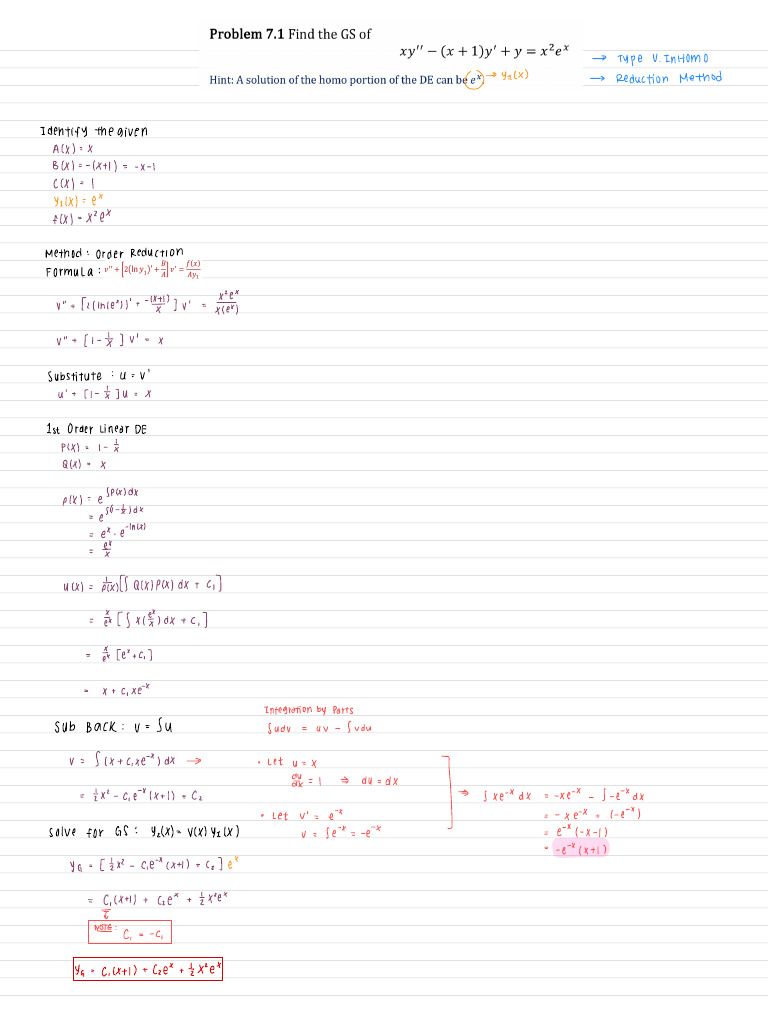 Problem 7.1 Find the GS of
xy'' − (x + 1)y' + y = x²eˣ
→ Type V. InHomo
Hint: A solution of the homo portion of the DE can be eˣ. → y₁(x)
→ Reduction Method
Identify the given
A(x) = x
B(x) = -(x+1) = -x-1
C(x) = 1
y₁(x) = eˣ
f(x) = x²eˣ
Method: Order Reduction
Formula: v'' + [2(ln y₁)' + B/A] v' = f(x)/Ay₁
v'' + [2(ln(eˣ))' + -(x+1)/x] v' = x²eˣ/x(eˣ)
v'' + [1 - 1/x] v' = x
Substitute : u = v'
u' + [1 - 1/x]u = x
1st Order Linear DE
P(x) = 1 - 1/x
Q(x) = x
ρ(x) = e^∫P(x)dx
= e^∫(1-1/x)dx
= eˣ · e^-ln(x)
= eˣ/x
u(x) = 1/ρ(x) [∫ Q(x)ρ(x) dx + C₁]
= x/eˣ [∫ x(eˣ/x)dx + C₁]
= x/eˣ [eˣ + C₁]
= x + C₁xe⁻ˣ
Sub Back: v = ∫u
v = ∫(x + C₁xe⁻ˣ)dx →
= ½x² - C₁e⁻ˣ(x+1) + C₂
Integration by Parts
∫udv = uv - ∫vdu
• Let u = x
du/dx = 1 ⇒ du = dx
• Let v' = e⁻ˣ
v = ∫e⁻ˣ = -e⁻ˣ
⇒ ∫xe⁻ˣdx = -xe⁻ˣ - ∫-e⁻ˣdx
= -xe⁻ˣ + (-e⁻ˣ)
= e⁻ˣ(-x-1)
= -e⁻ˣ(x+1)
Solve for GS: y₂(x) = v(x)y₁(x)
yG = [½x² - C₁e⁻ˣ(x+1) + C₂]eˣ
= C₁(x+1) + C₂eˣ + ½x²eˣ
NOTE:
C₁ = -C₁
yG = C₁(x+1) + C₂eˣ + ½x²eˣ